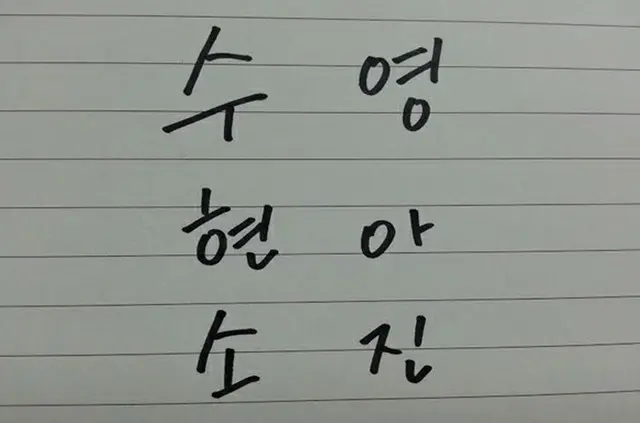 수 영
현 아
소 진